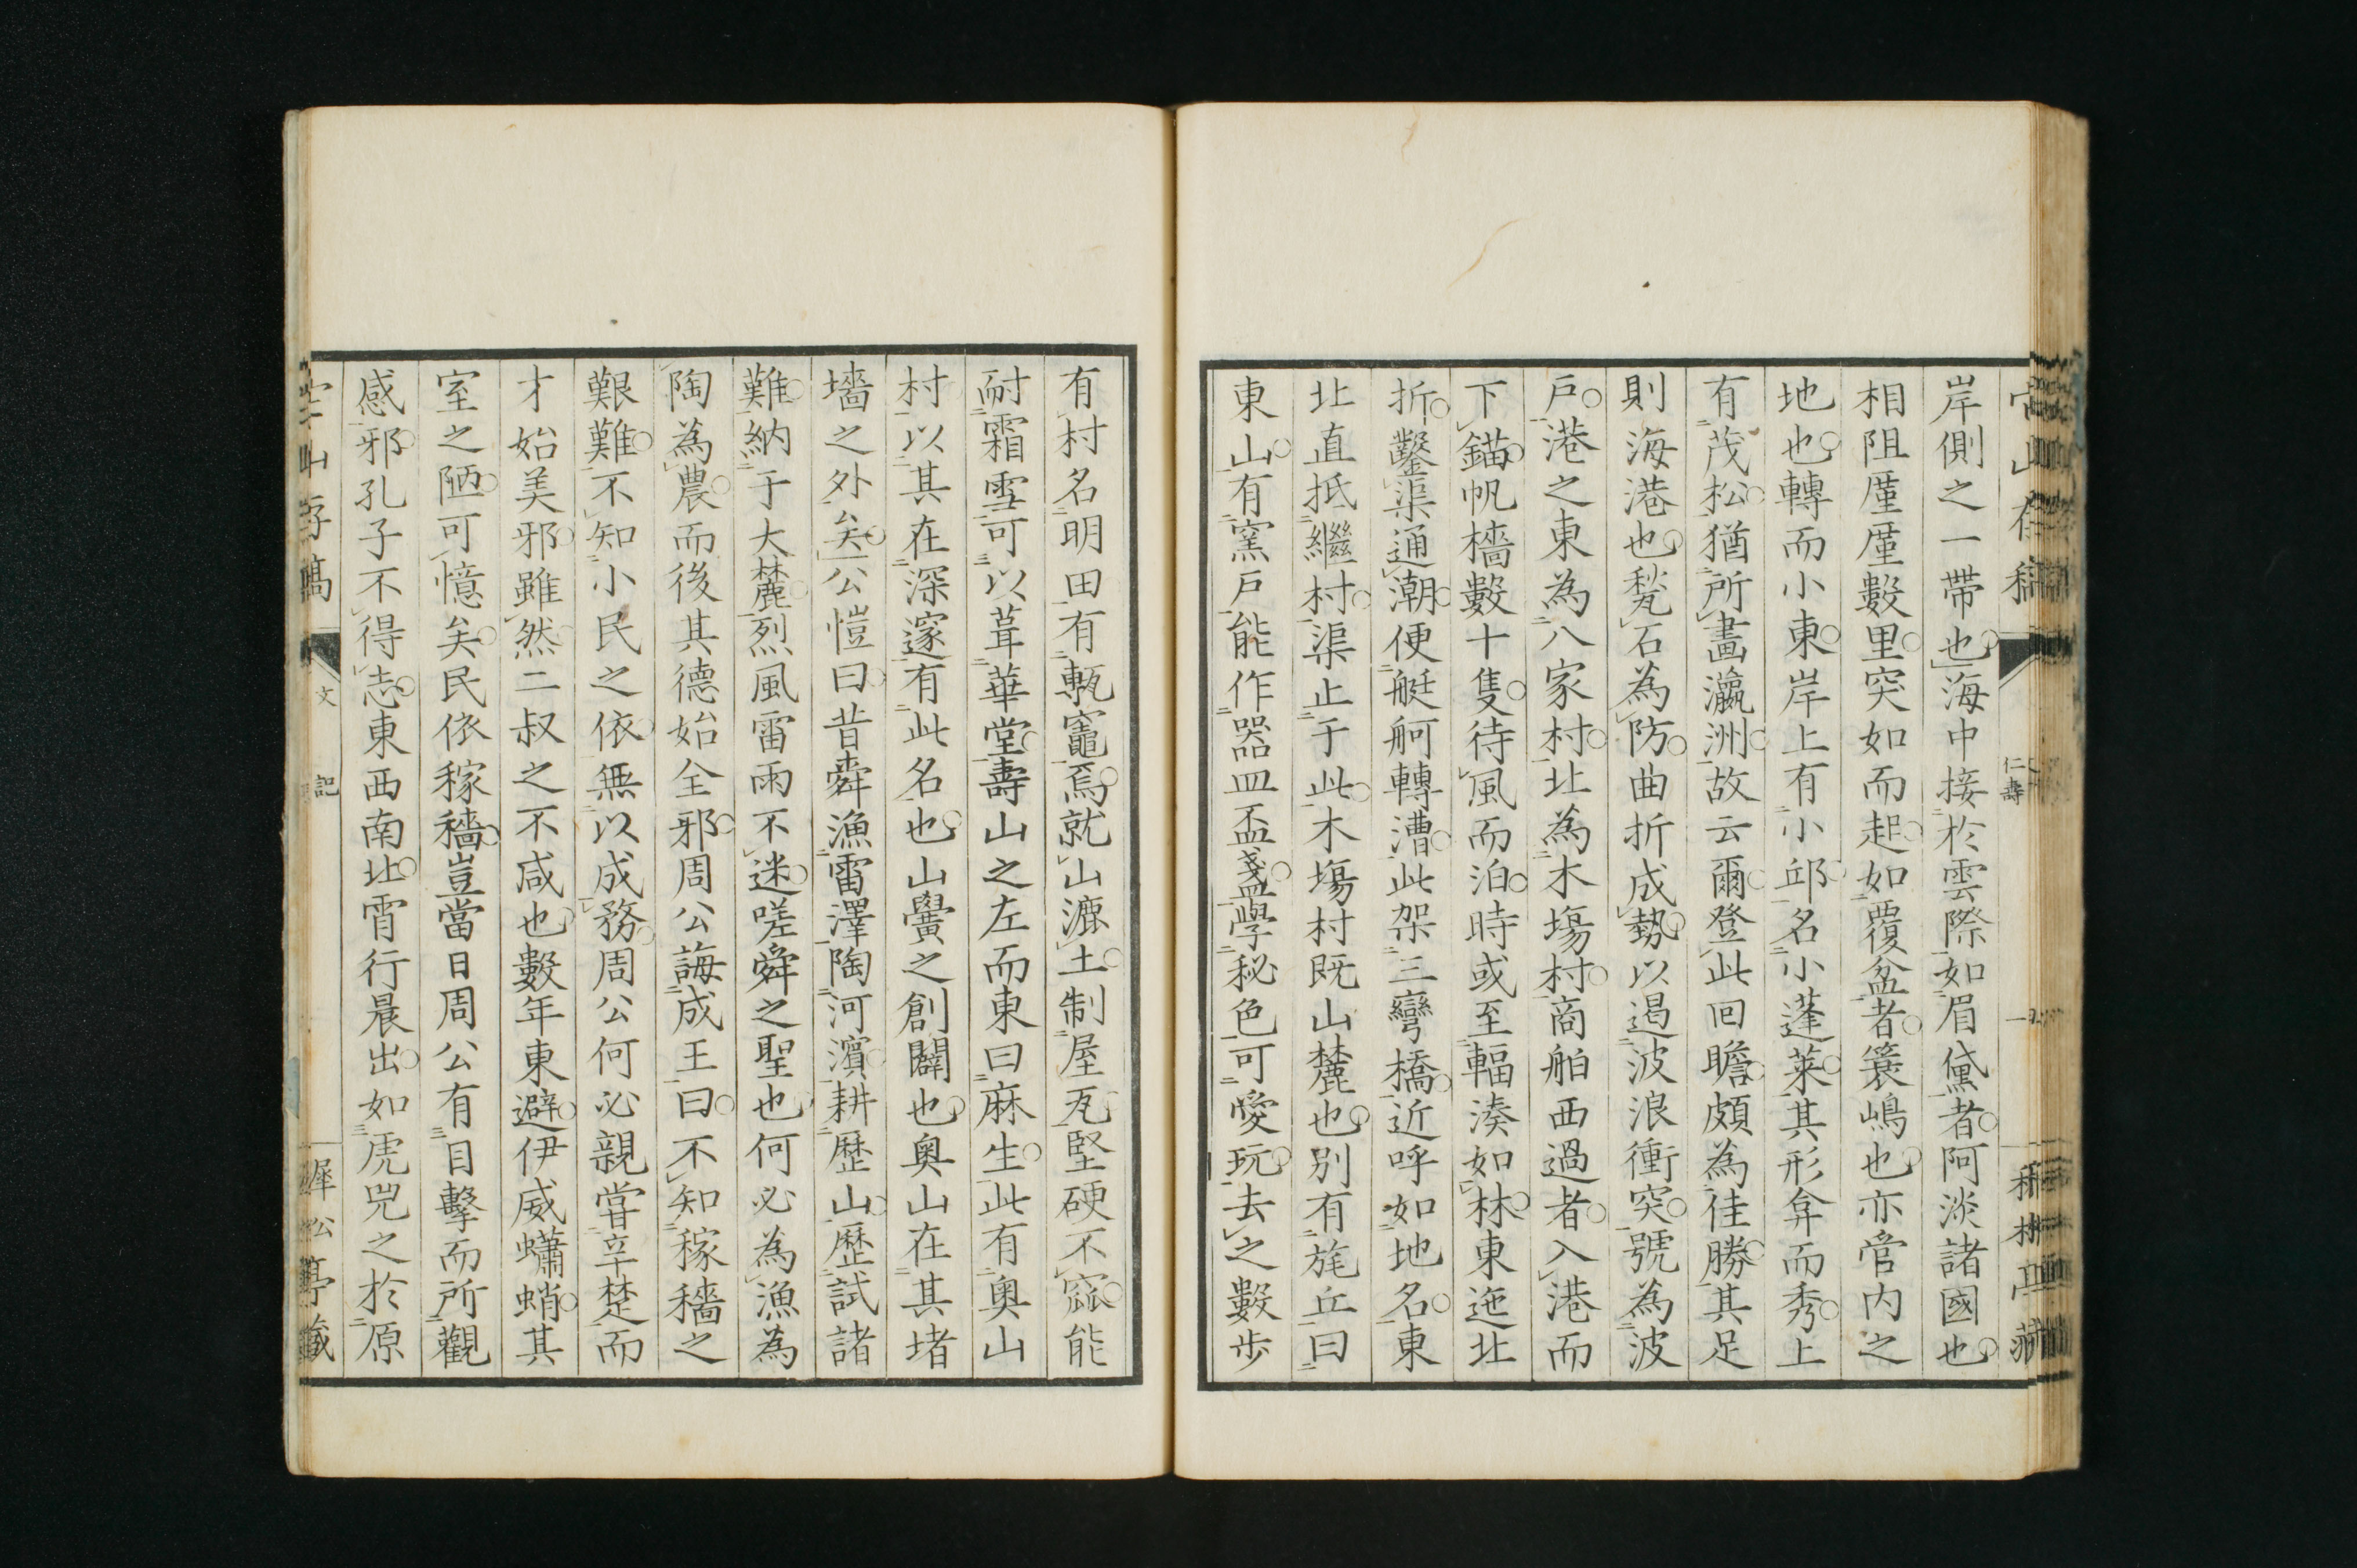 岸側之一帶也海中接於雲際如眉黛者阿淡諸國也
相阻廑廑數里突如而起如覆盆者簑嶋也亦管内之
地也轉而小東岸上有小邱名小蓬萊其形弇而秀上
有茂松猶所畫瀛洲故云爾登此回瞻頗為佳勝其足
則海港也甃石為防曲折成勢以遏波浪衝突號為波
戶港之東為八家村北為木塲村商舶西過者入港而
下錨帆檣數十隻待風而泊時或至輻湊如林東迤北
折鑿渠通潮便艇舸轉漕此架三彎橋近呼如地名東
北直抵繼村渠止于此木塲村既山麓也別有旄丘曰
東山有窯戶能作器皿盃盞學秘色可愛玩去之數步
有村名明田有甎竈焉就山漉土制屋瓦堅硬不窳能
耐霜雪可以葺華堂壽山之左而東曰麻生此有奥山
村以其在深邃有此名也山黌之創闢也奥山在其堵
墻之外矣公愷曰昔舜漁雷澤陶河濱耕歷山歷試諸
難納于大麓烈風雷雨不迷嗟舜之聖也何必為漁為
陶為農而後其德始全邪周公誨成王曰不知稼穡之
艱難不知小民之依無以成務周公何必親甞辛楚而
才始美邪雖然二叔之不咸也數年東避伊威蠨蛸其
室之陋可憶矣民依稼穡豈當日周公有目擊而所觀
感邪孔子不得志東西南北宵行晨出如虎兕之於原
文
記
仁壽